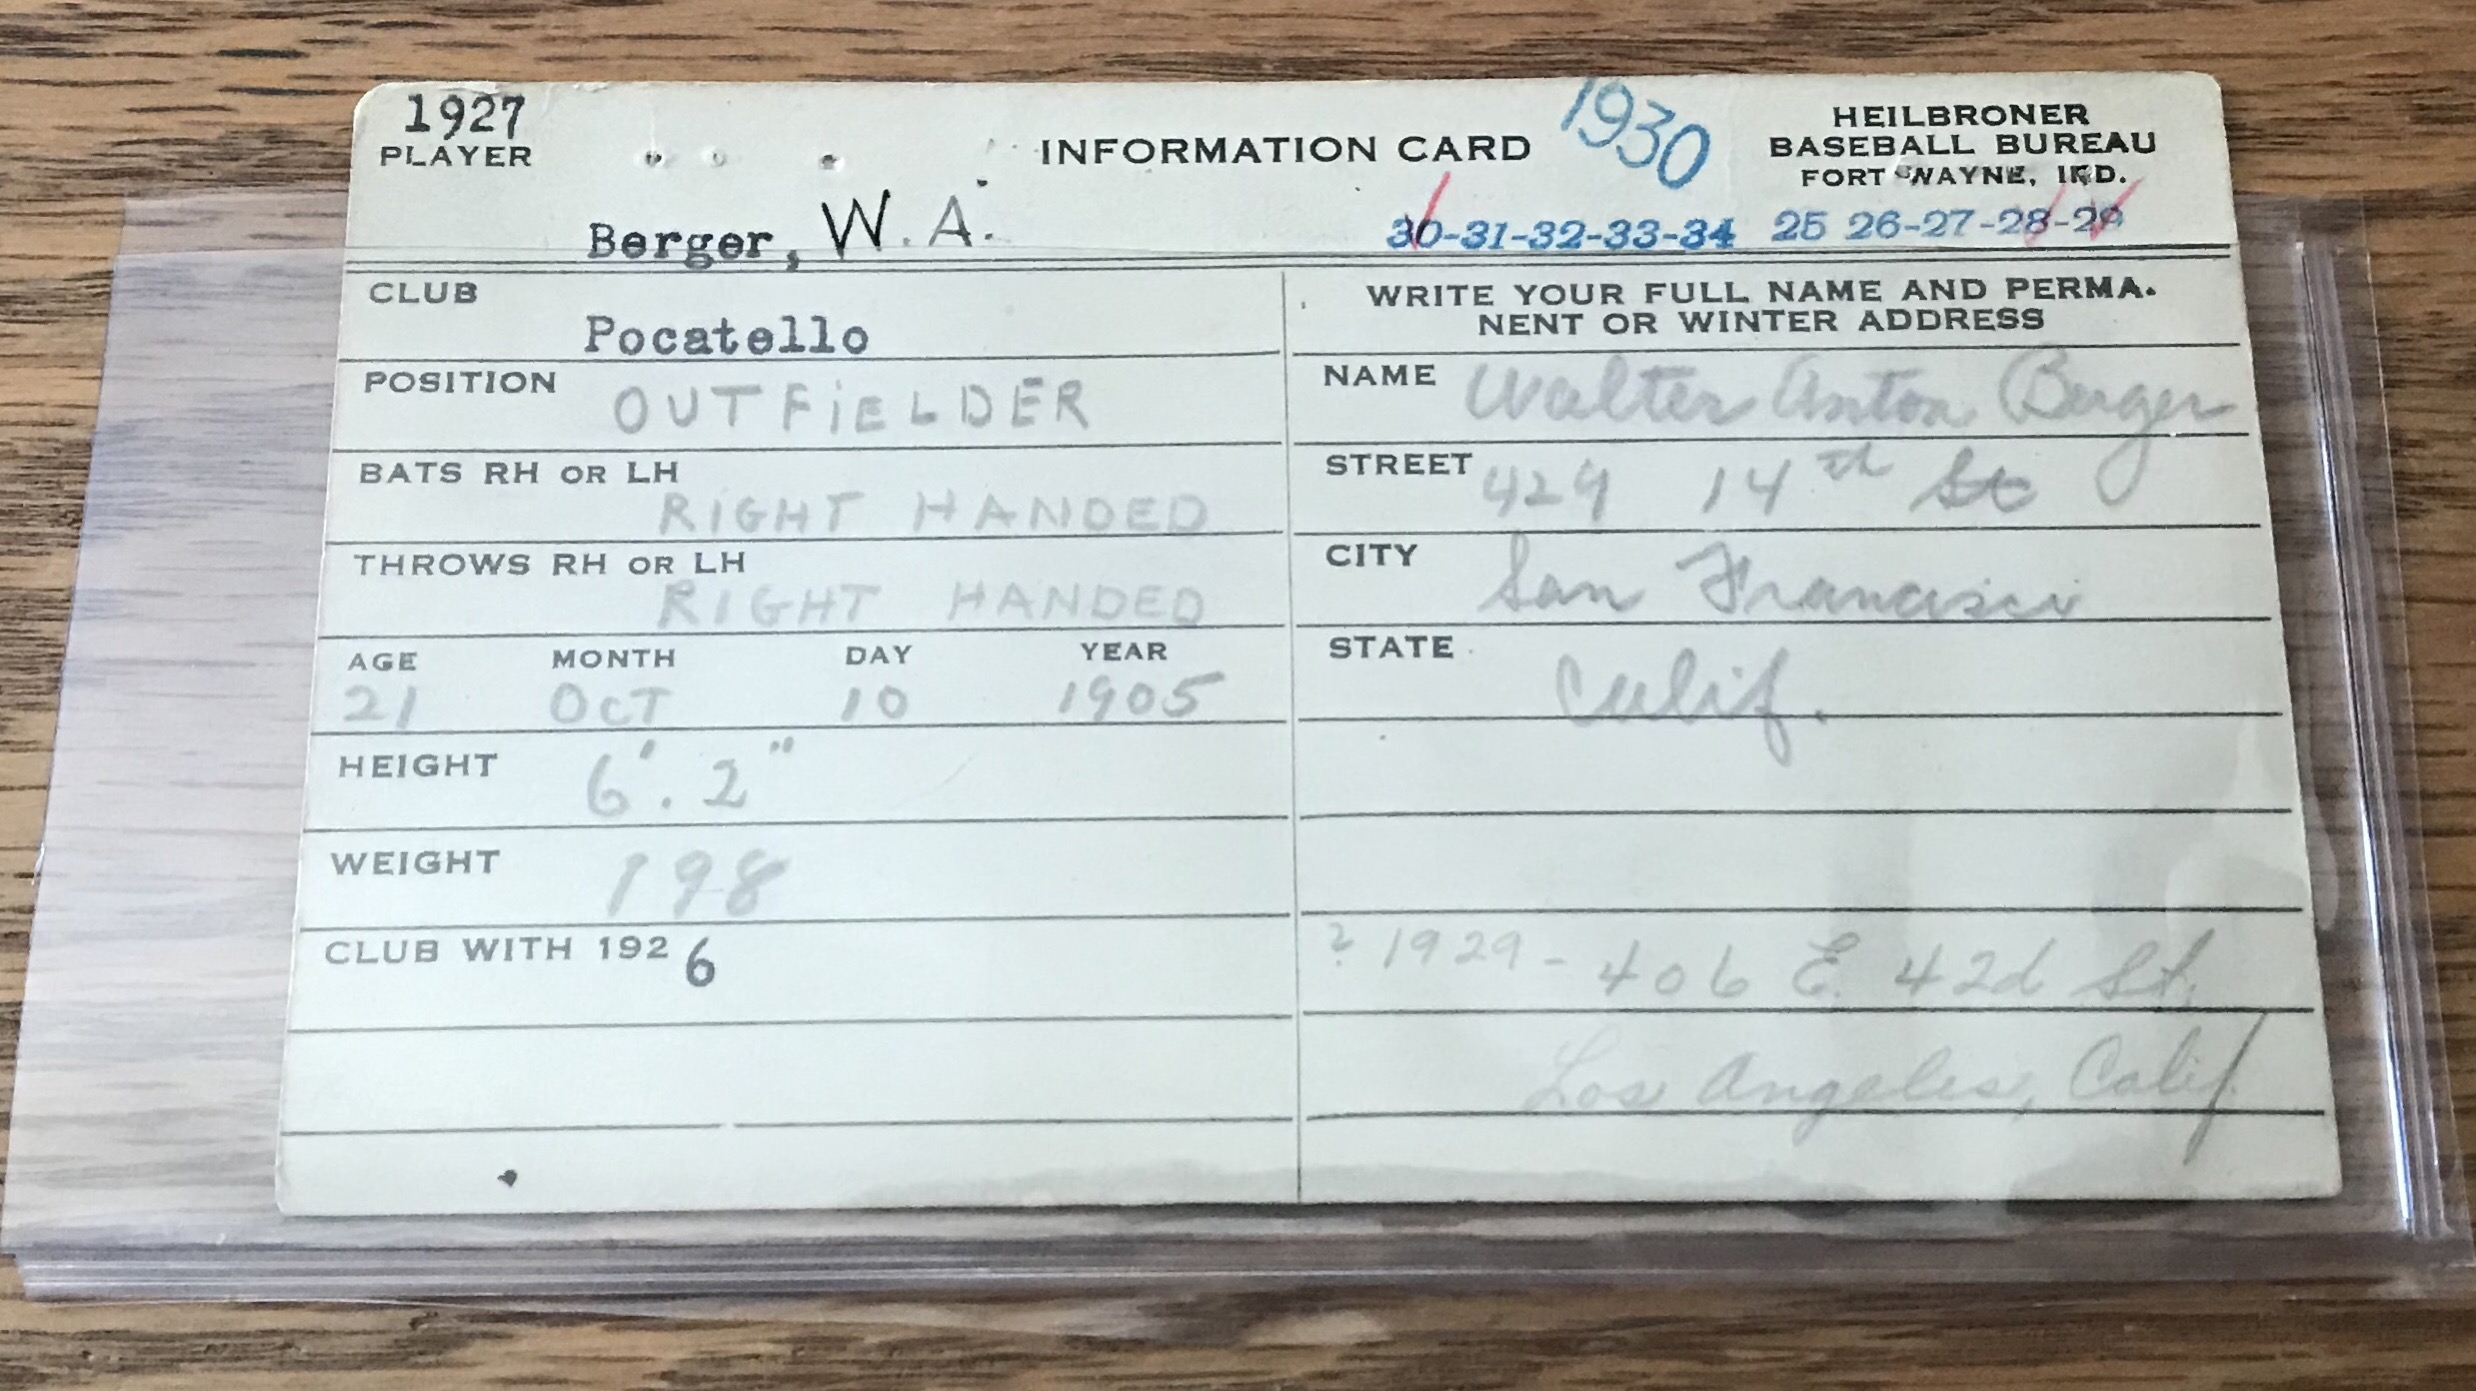 1927
PLAYER
INFORMATION CARD
1930
HEILBRONER
BASEBALL BUREAU
FORT WAYNE, IND.
Berger, W. A.
30-31-32-33-34 25 26-27-28-29
CLUB
Pocatello
POSITION OUTFiELDER
BATS RH OR LH
RiGHT HANDED
THROWS RH OR LH
RIGHT HANDED
AGE MONTH DAY YEAR
21 OCT 10 1905
HEIGHT 6'. 2"
WEIGHT 198
CLUB WITH 1926
WRITE YOUR FULL NAME AND PERMA-
NENT OR WINTER ADDRESS
NAME Walter Anton Berger
STREET 429 14th St
CITY San Francisco
STATE Calif.
? 1929 - 406 E. 42d St.
Los Angeles, Calif